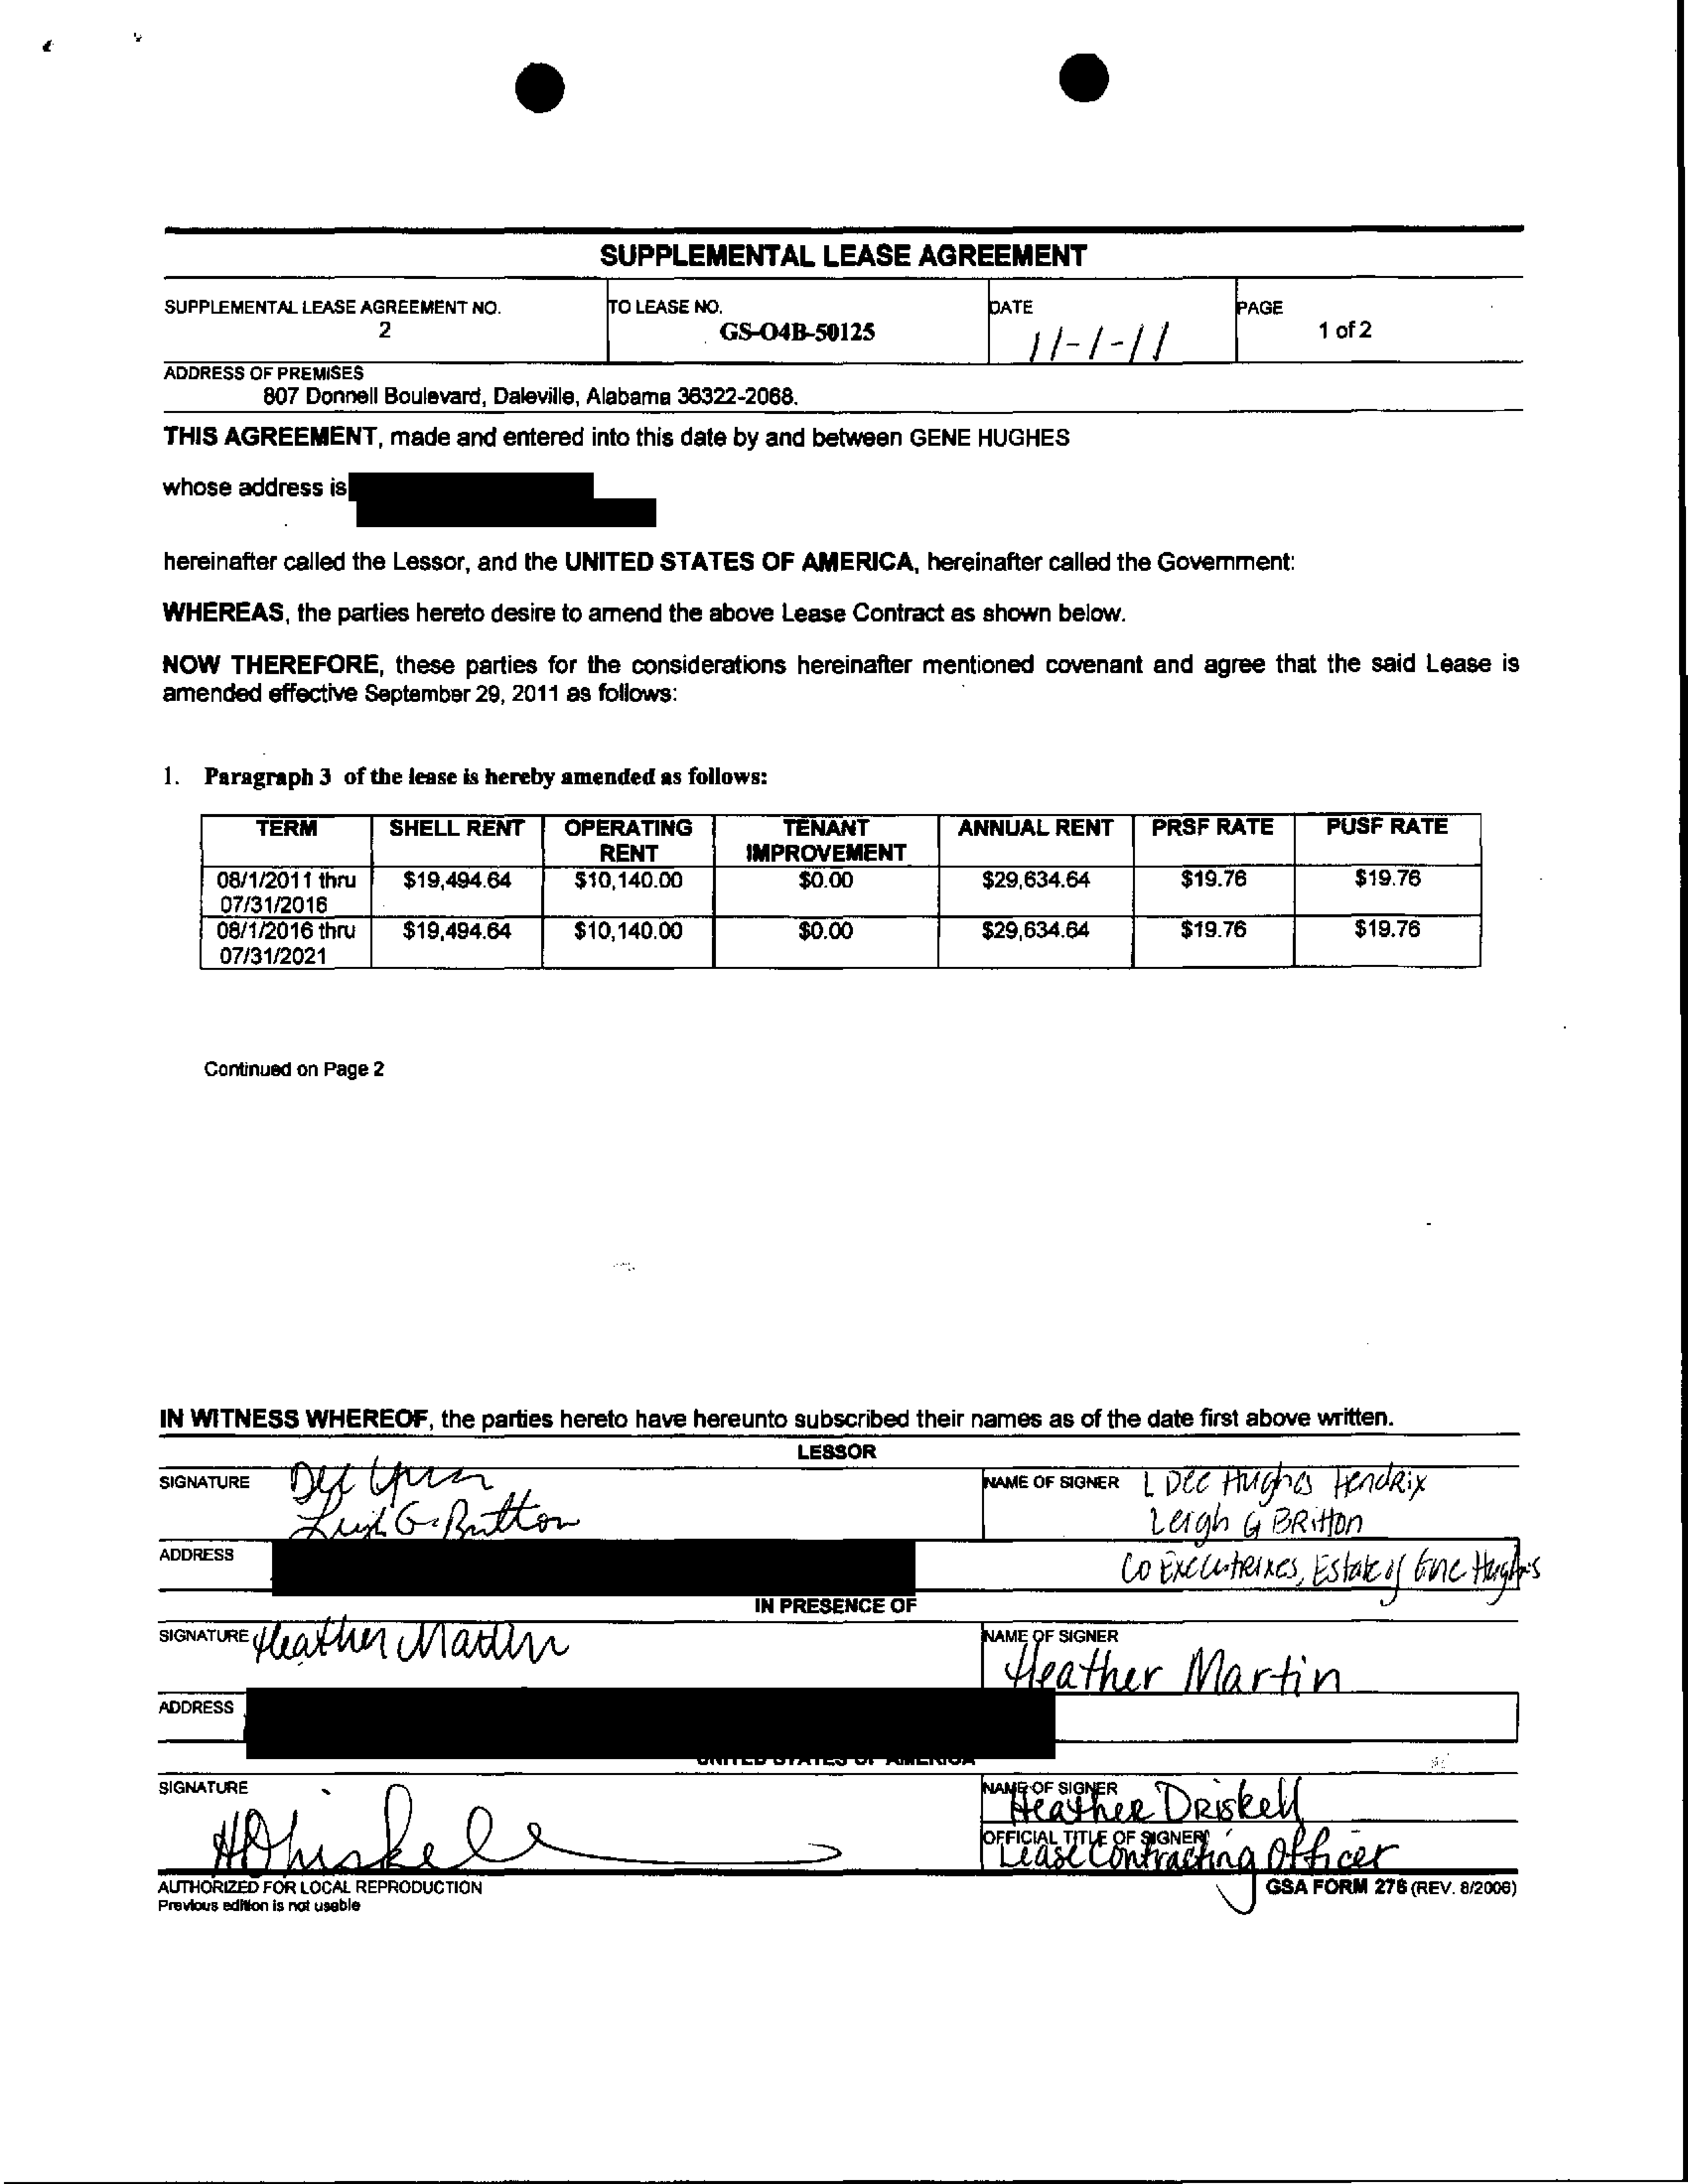 SUPPLEMENTAL LEASE AGREEMENT
SUPPLEMENTAL LEASE AGREEMENT NO. TO LEASE NO. DATE PAGE
2 GS-O4B-50125 11-1-11 1 of 2
ADDRESS OF PREMISES
807 Donnell Boulevard, Daleville, Alabama 36322-2068.
THIS AGREEMENT, made and entered into this date by and between GENE HUGHES
whose address is
hereinafter called the Lessor, and the UNITED STATES OF AMERICA, hereinafter called the Government:
WHEREAS, the parties hereto desire to amend the above Lease Contract as shown below.
NOW THEREFORE, these parties for the considerations hereinafter mentioned covenant and agree that the said Lease is
amended effective September 29, 2011 as follows:
1. Paragraph 3 of the lease is hereby amended as follows:
TERM SHELL RENT OPERATING TENANT ANNUAL RENT PRSF RATE PUSF RATE
RENT IMPROVEMENT
08/1/2011 thru $19,494.64 $10,140.00 $0.00 $29,634.64 $19.76 $19.76
07/31/2016
08/1/2016 thru $19,494.64 $10,140.00 $0.00 $29,634.64 $19.76 $19.76
07/31/2021
Continued on Page 2
IN WITNESS WHEREOF, the parties hereto have hereunto subscribed their names as of the date first above written.
LESSOR
SIGNATURE Dee NAME OF SIGNER L Dee Hughes Hendrix
Leigh G. Britton Leigh G BRitton
ADDRESS Co Executrixes, Estate of Gene Hughes
IN PRESENCE OF
SIGNATURE Heather Martin NAME OF SIGNER
Heather Martin
ADDRESS
UNITED STATES OF AMERICA
SIGNATURE NAME OF SIGNER Heather Driskell
HDriskell OFFICIAL TITLE OF SIGNER Lease Contracting Officer
AUTHORIZED FOR LOCAL REPRODUCTION GSA FORM 276 (REV. 8/2006)
Previous edition is not useable